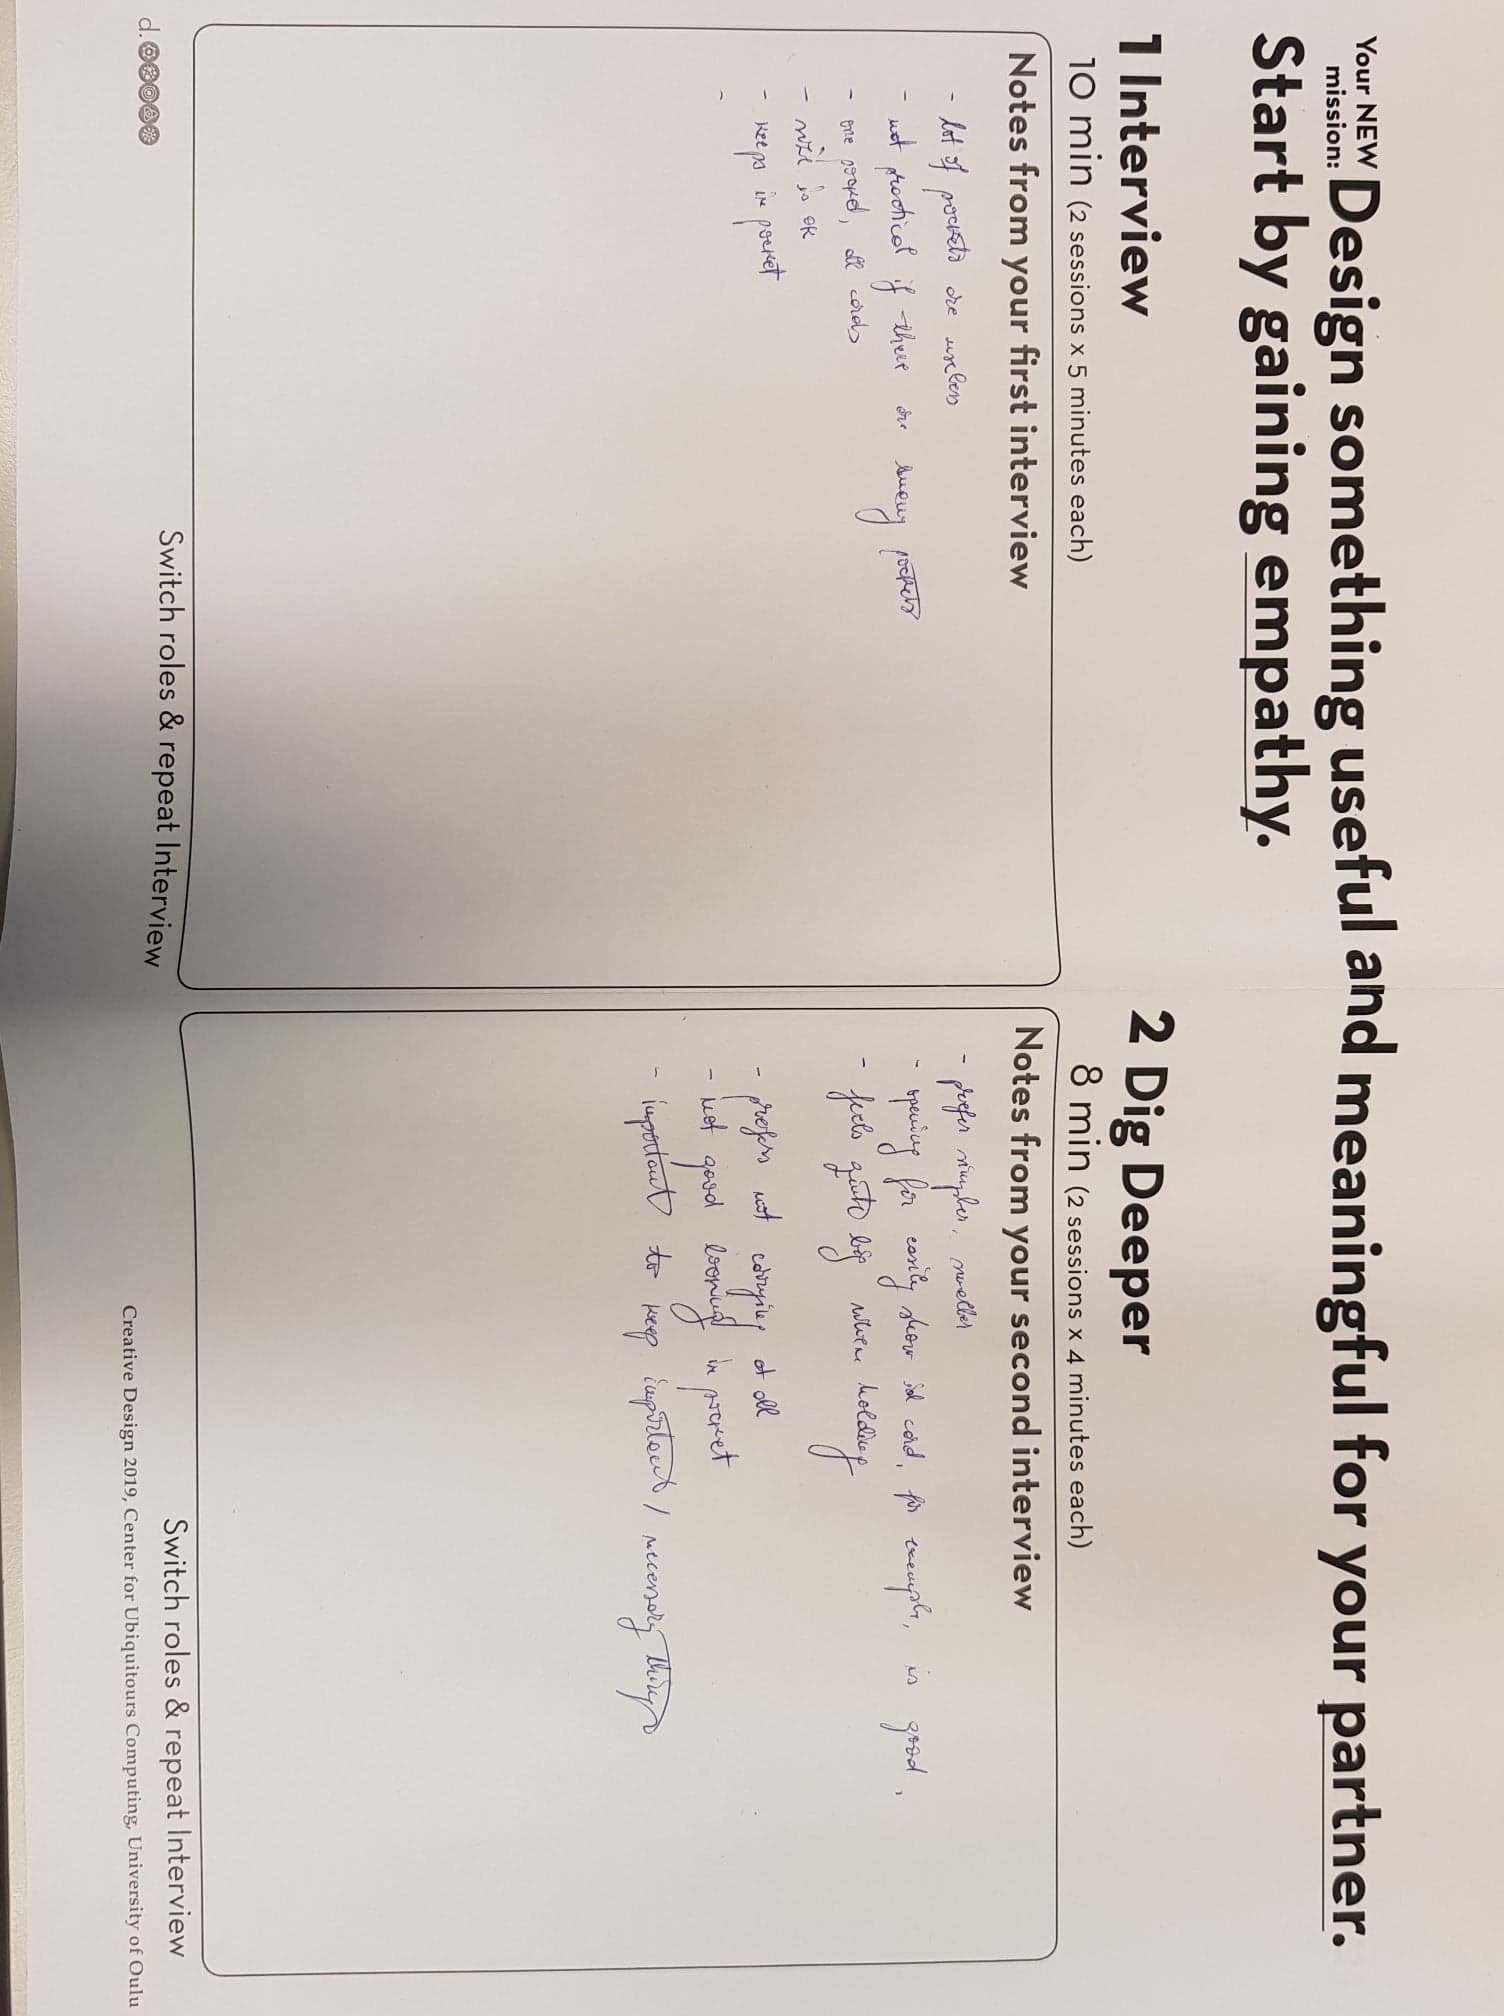 Your NEW mission: Design something useful and meaningful for your partner.
Start by gaining empathy.
1 Interview
10 min (2 sessions x 5 minutes each)
Notes from your first interview
- lot of pockets are useless
- not practical if there are many pockets
- one pocket, all cards
- size is ok
- keeps in pocket
-
Switch roles & repeat Interview
2 Dig Deeper
8 min (2 sessions x 4 minutes each)
Notes from your second interview
- prefer simpler, smaller
- opening for easily show id card, for example, is good,
- feels quite big when holding
- prefers not carrying at all
- not good looking in pocket
- important to keep important / necessary things
Switch roles & repeat Interview
d.
Creative Design 2019, Center for Ubiquitours Computing, University of Oulu